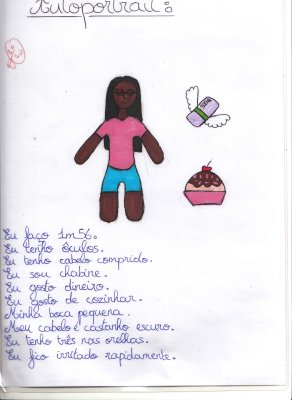 Autoportrait :
Eu faço 1m56.
Eu tenho óculos.
Eu tenho cabelo comprido.
Eu sou chabine.
Eu gosto dineiro.
Eu gosto de cozinhar.
Minha boca pequena.
Meu cabelo é castanho escuro.
Eu tenho três nas orelhas.
Eu fico irritado rapidamente.